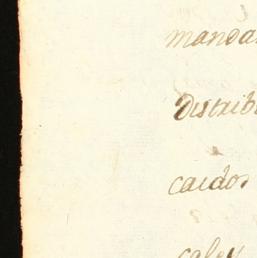 manda
distrib
caidos